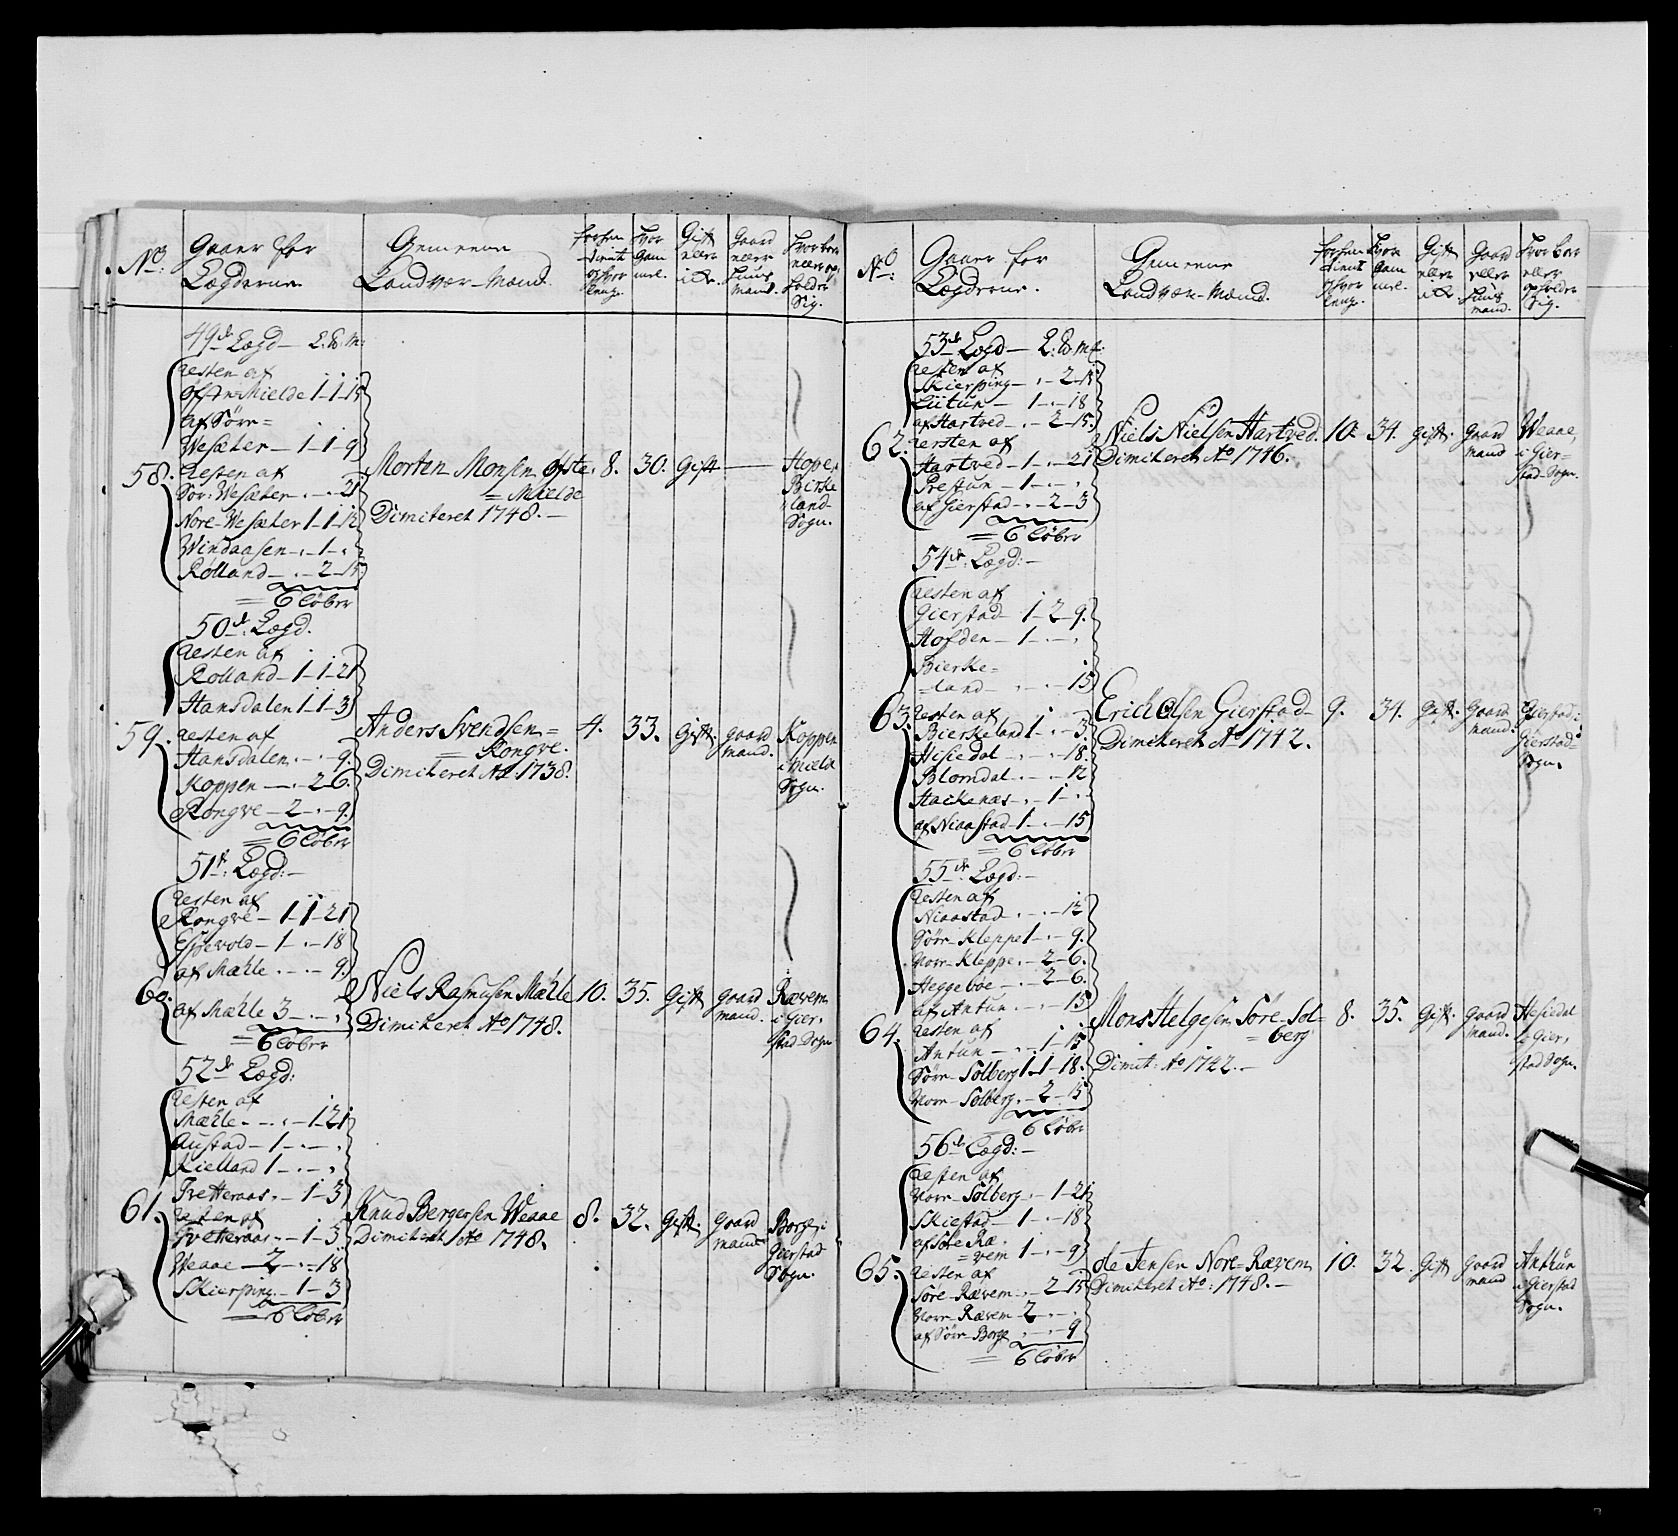 No:
Gaaer for
Lægderne
Gemeene
Landvær-Mænd
forhen
tient
og hvor
lenge.
Hvor
Gam
mel.
Gift
eller
ick.
Gaard
eller
Huus
mand.
Hvor boer
eller op
holder
Sig.
49de Lægd — 2: Comp:
Resten af
Øfstn Mielde 1-1-15
af Sørn=
Wesæter — 1-1-9
58. Resten af
Sør: Wesæter — . — 21
Nore-Wesæter 1-1-12
Windaasen — . 1 — .
Rølland — . — 2-15
= 6 Løber
Morten Monsen Øfste.
= Mielde
Dimiteret 1748. —
8.
30.
Gift
Hope i
Birke
land
Sogn.
50de: Lægd.
Resten af
Rolland — 1-1-21
Hansdalen 1-1-3
59. Resten af
Hansdalen . — . 9.
Koppen — . 2-6.
Rongve — 2 — . 9.
= 6 Løber
Anders Svendsen =
= Rongve.
Dimiteret Ao 1738.
4.
33.
Gift.
gaard
mand.
Koppen
i Mield
Sogn.
51de: Lægd: —
Resten af
Rongve — 1-1-21
Espevold — 1 — . — 18
af Mæhle . — . — 9.
60. af Mæhle 3 — . — .
= 6 Løber
Niels Rasmusen Mæhle
Dimiteret Ao 1748.
10.
35.
Gift
gaard
mand.
Rævem
i Gier-
stad Sogn
52de Lægd:
Resten af
Mæhle . — . — 1-21
Austad — 1 — . — .
Kielland 1 — . — .
Tvetteraas . — 1-3
61. Resten af
Tvetteraas . — 1-3
Weaae — 2 — . — 18
Skierping . — 1-3
= 6 Løber
Knud Bergersen Weaae
Dimiteret Ao 1748.
8.
32.
Gift.
gaard
mand.
Borge i
Gierstad
Sogn.
No:
Gaaer for
Lægderne.
Gemeene
Landvær-Mænd.
forhen
tient
og hvor
lenge.
Hvor
Gam
mel.
Gift
eller
ick.
Gaard
eller
Huus
mand.
Hvor boer
eller
opholder
Sig.
53de Lægd — 2: Comp:
Resten af
Skierping — . — 2-15
Liitun — 1 — . — 18
af Hartved — . 2-15.
62. Resten af
Hartved — 1 — . — 21
Prestun — 1 — . — .
af Gierstad — . — 2-3
= 6 Løber
Niels Nielsen Hartved.
Dimiteret Ao 1746.
10.
34.
Gift.
Gaard
mand
Weaae,
i Gier=
stad Sogn.
54de: Lægd: —
Resten af
Gierstad 1-2-9.
Hofden — 1 — . — .
Bierke=
=land — . — . — 15
63. Resten af
Bierkeland 1 — . — 3.
Hisiedal — . — . — 18.
Blomdal — . — . — 12
Hackenæs — . 1 — . .
af Niaastad — 1 — . — 15
= 6 Løber
Erich Olsen Gierstad
Dimiteret Ao 1742.
9.
34.
Gift.
Gaard
mand.
Gierstad i
Gierstad
Sogn.
55de: Lægd: —
Resten af
Niaastad — . — . — 12
Sørn-Kleppe 1 — . — 9.
Norn-Kleppe . — 2-6.
Heggebøe — . — 2-6.
af Antun . — . — 15
64. Resten af
Antun — . — 1-15
Sørn-Solberg 1-1-18.
Norn-Solberg . — 2-15
= 6 Løber
Mons Helgesen Søre-Sol=
= berg
Dimit: Ao 1742. —
8.
35.
Gift.
gaard
mand.
Hesiedal
i Gier,
stad Sogn.
56de Lægd: —
Resten af
Norn-Solberg . — 1-21
Skiestad — 1 — . — 18
af Søre Ræ-
= vem 1 — . — 9
65. Resten af
Søre-Rævem . — 2-15
Norn-Rævem 2 — . — .
af Sørn-Borge . — . — 9
= 6 Løber
Ole Jensen Nore-Rævem
Dimiteret Ao: 1748. —
10.
32.
Gift
gaard
mand
Anthun
i Gierstad
Sogn.